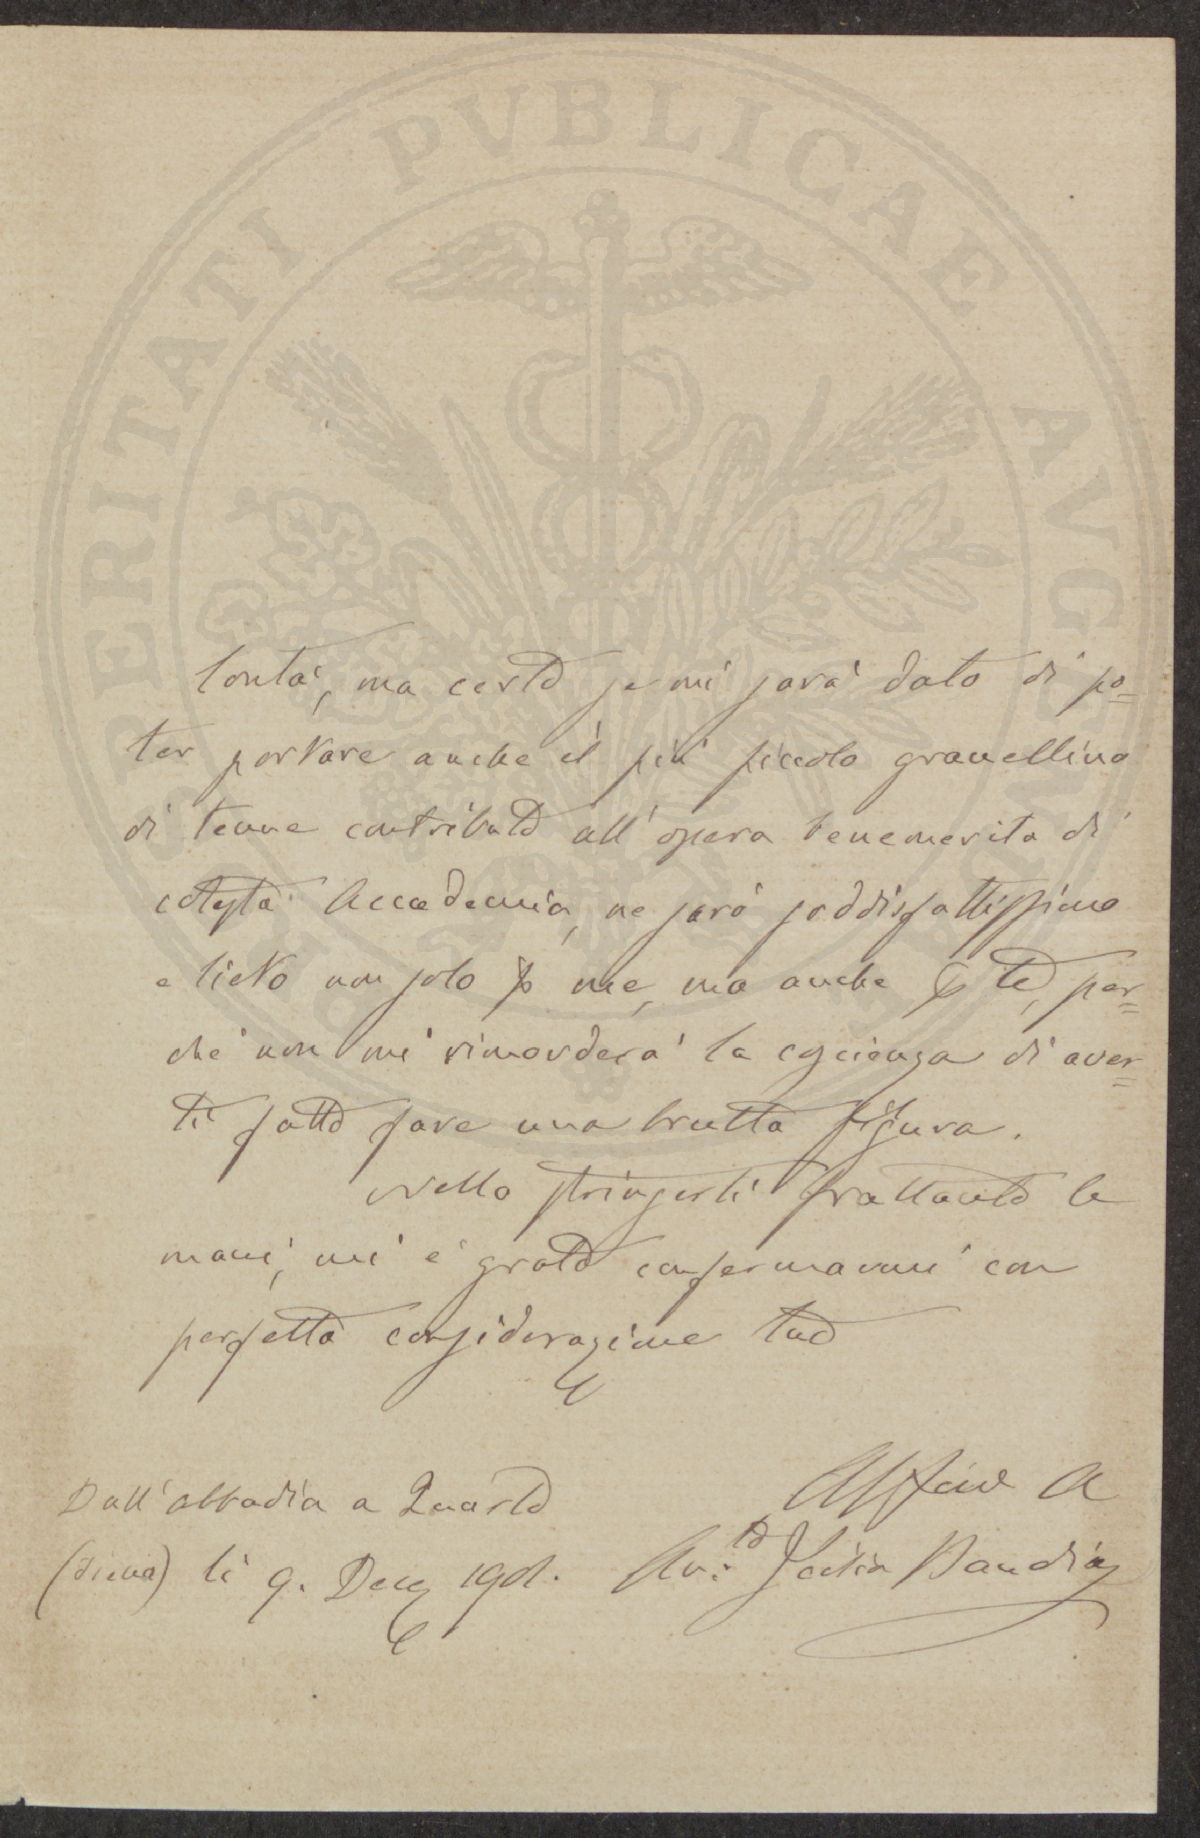 PROSPERITATI PVBLICAE AVGENDAE
lontà, ma certo se mi sarà dato di po=
ter portare anche il più piccolo granellino
di tenue contributo all'opera benemerita di
cotesta Accademia, ne sarò soddisfattissimo
e lieto non solo p me, ma anche p te, per=
chè non mi rimorderà la coscienza di aver=
ti fatto fare una brutta figura.
Nello stringerti frattanto le
mani, mi è grato confermarmi con
perfetta considerazione tuo
Dall'abbadia a Quarto
(Siena) li 9. Dece 1901.
Aff A
Av:to Icilio Bandini